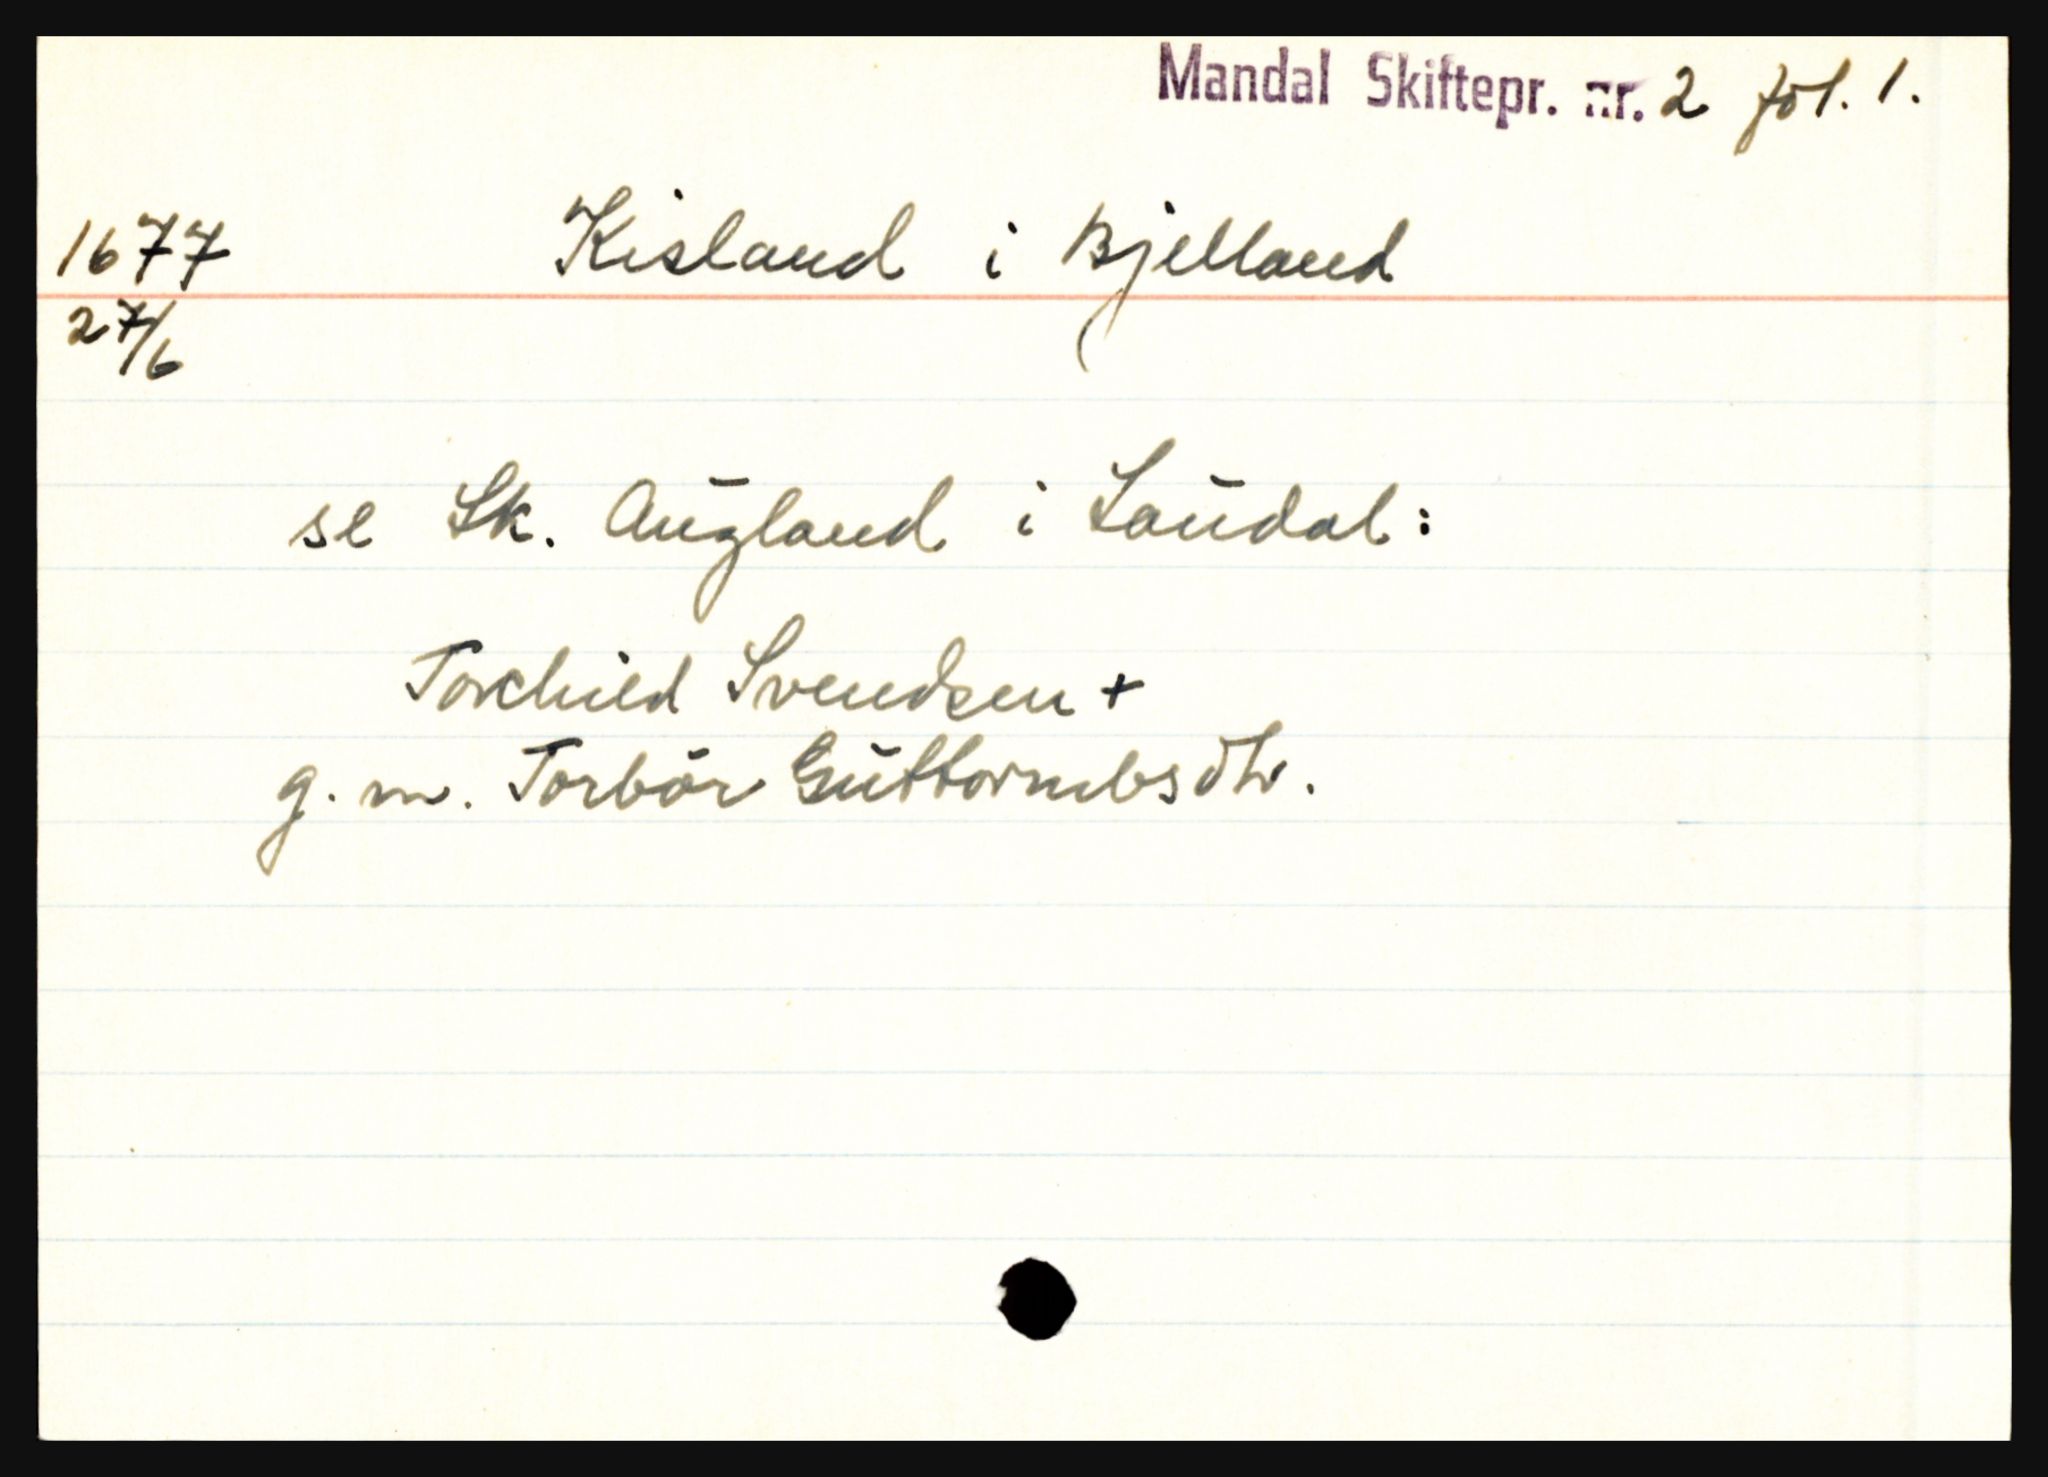 Mandal Skiftepr. nr. 2 fol. 1.
1677 Kisland i Bjelland
27/6
se Sk. Augland i Laudal:
Torchield Svendsen +
g. m. Torbör Guttormbsdtr.